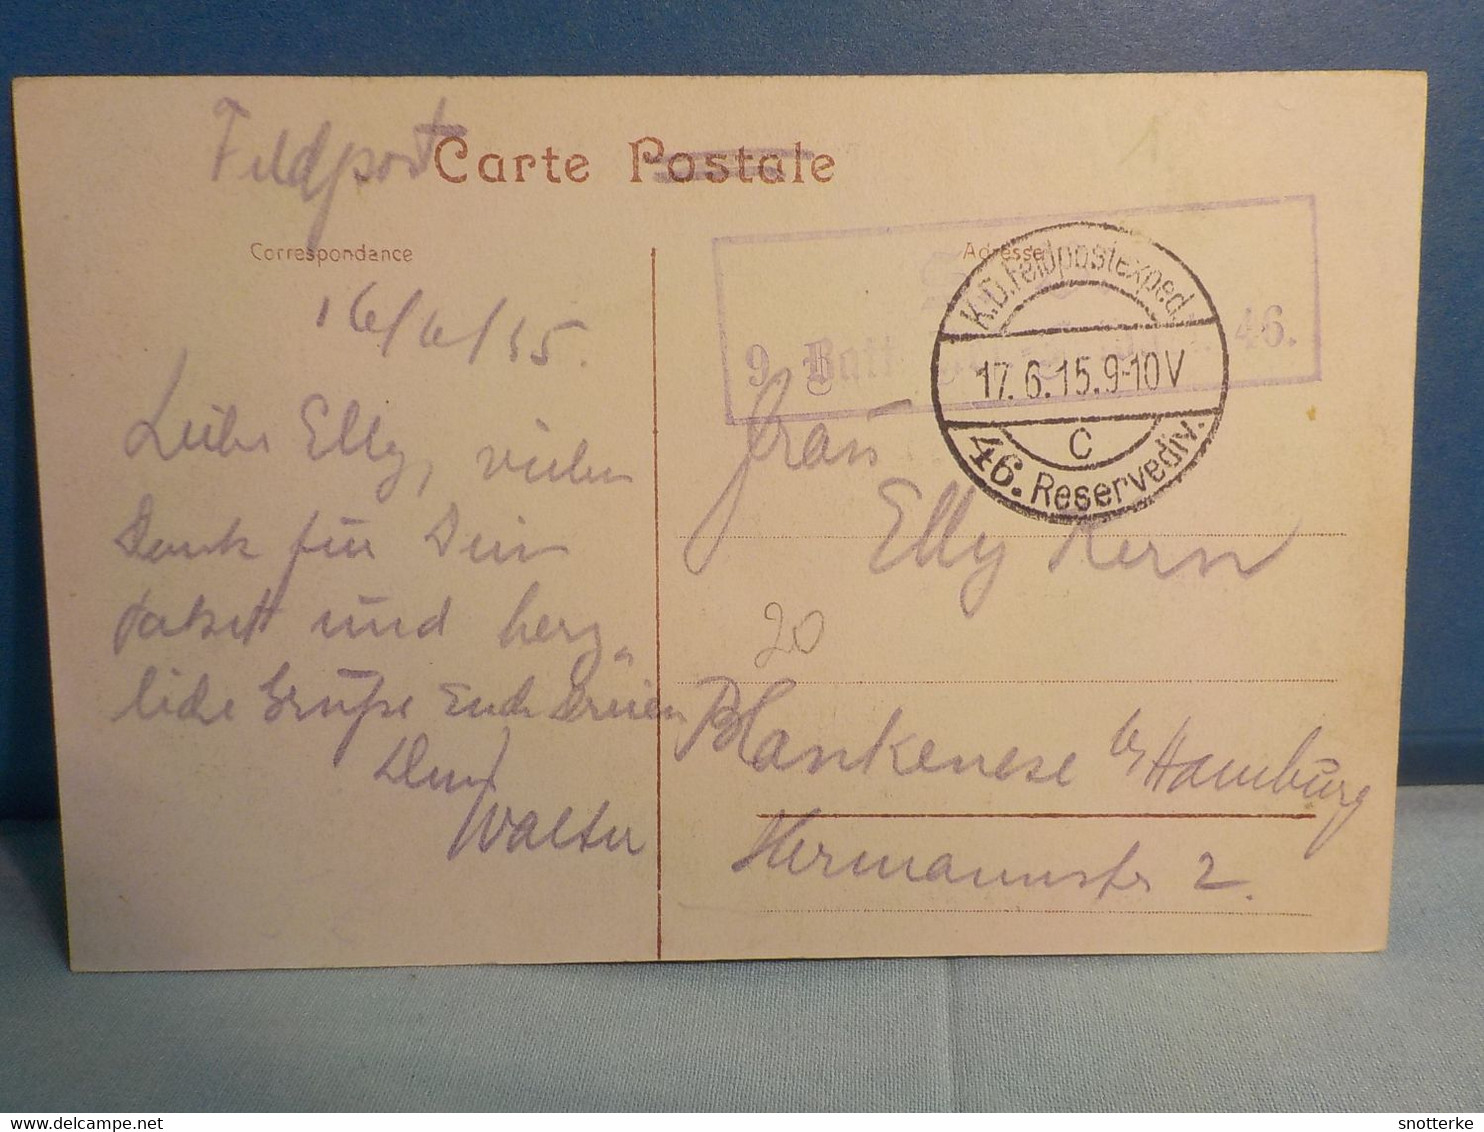 Feldpost Carte Postale
Correspondance
Adresse
16/6/15.
Liebe Elly, vielen
Dank für Dein
Paket und herz-
liche Grüße Euch Dreien
Dein
Walter
9. Batt. 46.
K.D. Feldpostexped.
17.6.15.9-10V
c
46. Reservediv.
Frau
Elly Kern
20
Blankenese b/Hamburg
Hermannstr 2.
snotterke